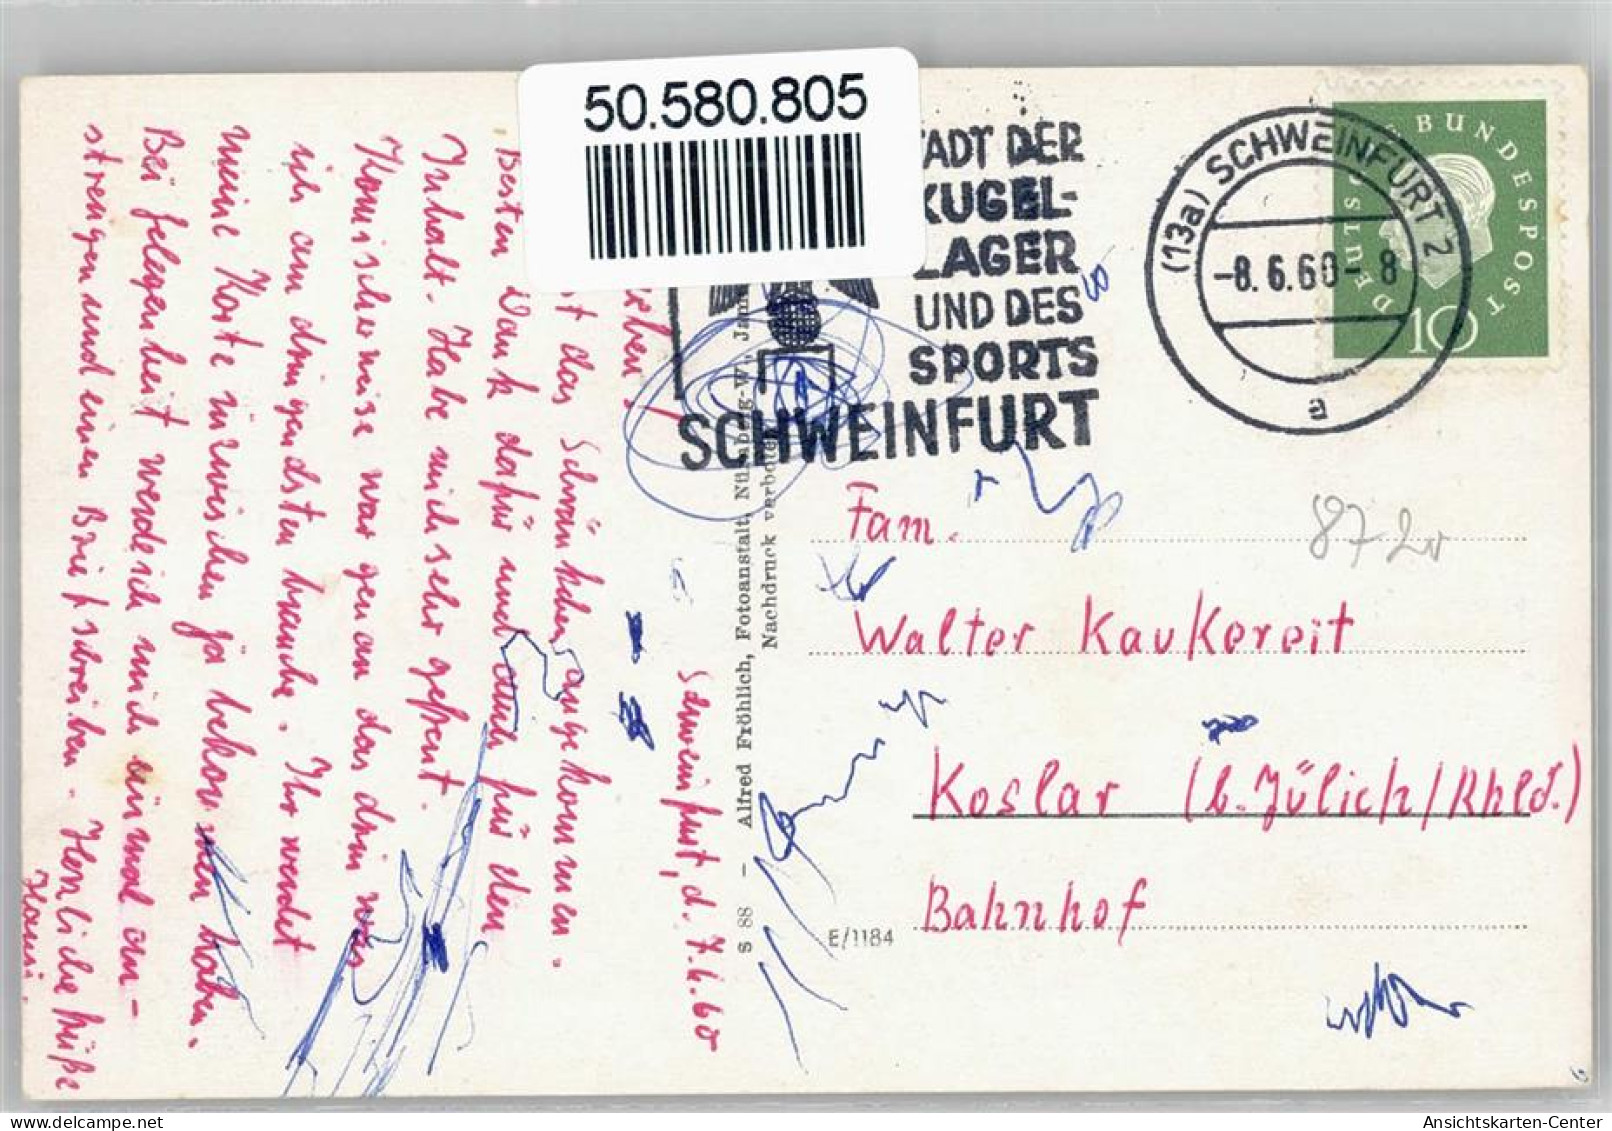 50.580.805
TADT DER
KUGEL-
LAGER
UND DES
SPORTS
SCHWEINFURT
(13a) SCHWEINFURT 2
-8.6.60-8
a
DEUTSCHE BUNDESPOST
10
Schweinfurt, d. 7.6.60
ieben!
st das Schränkchen angekommen.
Besten Dank dafür und auch für den
Inhalt. Habe mich sehr gefreut.
Komischerweise war genau das drin was
ich am dringendsten brauche. Ihr werdet
meine Karte inzwischen ja bekommen haben.
Bei Gelegenheit werde ich mich einmal an-
strengen und einen Brief schreiben. Herzliche Grüße
Hansi.
S 88 - Alfred Fröhlich, Fotoanstalt, Nürnberg-W., Jam
Nachdruck verboten
E/1184
Fam.
Walter Kaukereit
Koslar (b. Jülich/Rhld.)
Bahnhof
872
Ansichtskarten-Center